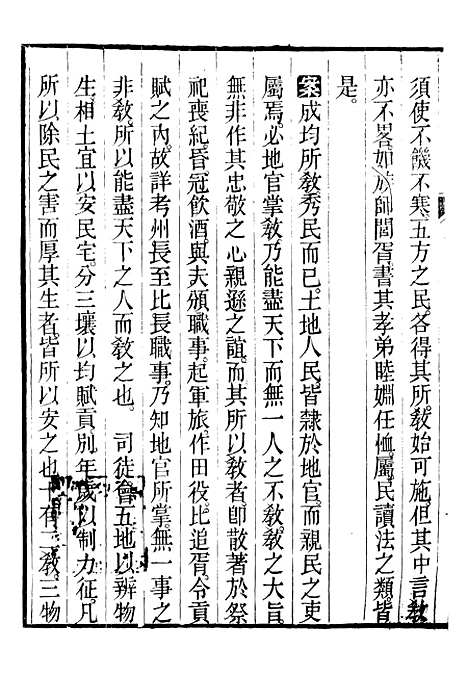 須使不饑不寒五方之民各得其所敎始可施但其中言敎
亦不畧如族師閭胥書其孝弟睦婣任恤屬民讀法之類皆
是
案成均所敎秀民而已土地人民皆隸於地官而親民之吏
屬焉必地官掌敎乃能盡天下而無一人之不敎敎之大旨
無非作其忠敬之心親遜之誼而其所以敎者卽散著於祭
祀喪紀昏冠飮酒與夫頒職事起軍旅作田役比追胥令貢
賦之內故詳考州長至比長職事乃知地官所掌無一事之
非敎所以能盡天下之人而敎之也 司徒會五地以辨物
生相土宜以安民宅分三壤以均賦貢別年歲以制力征凡
所以除民之害而厚其生者皆所以安之也十有二敎三物